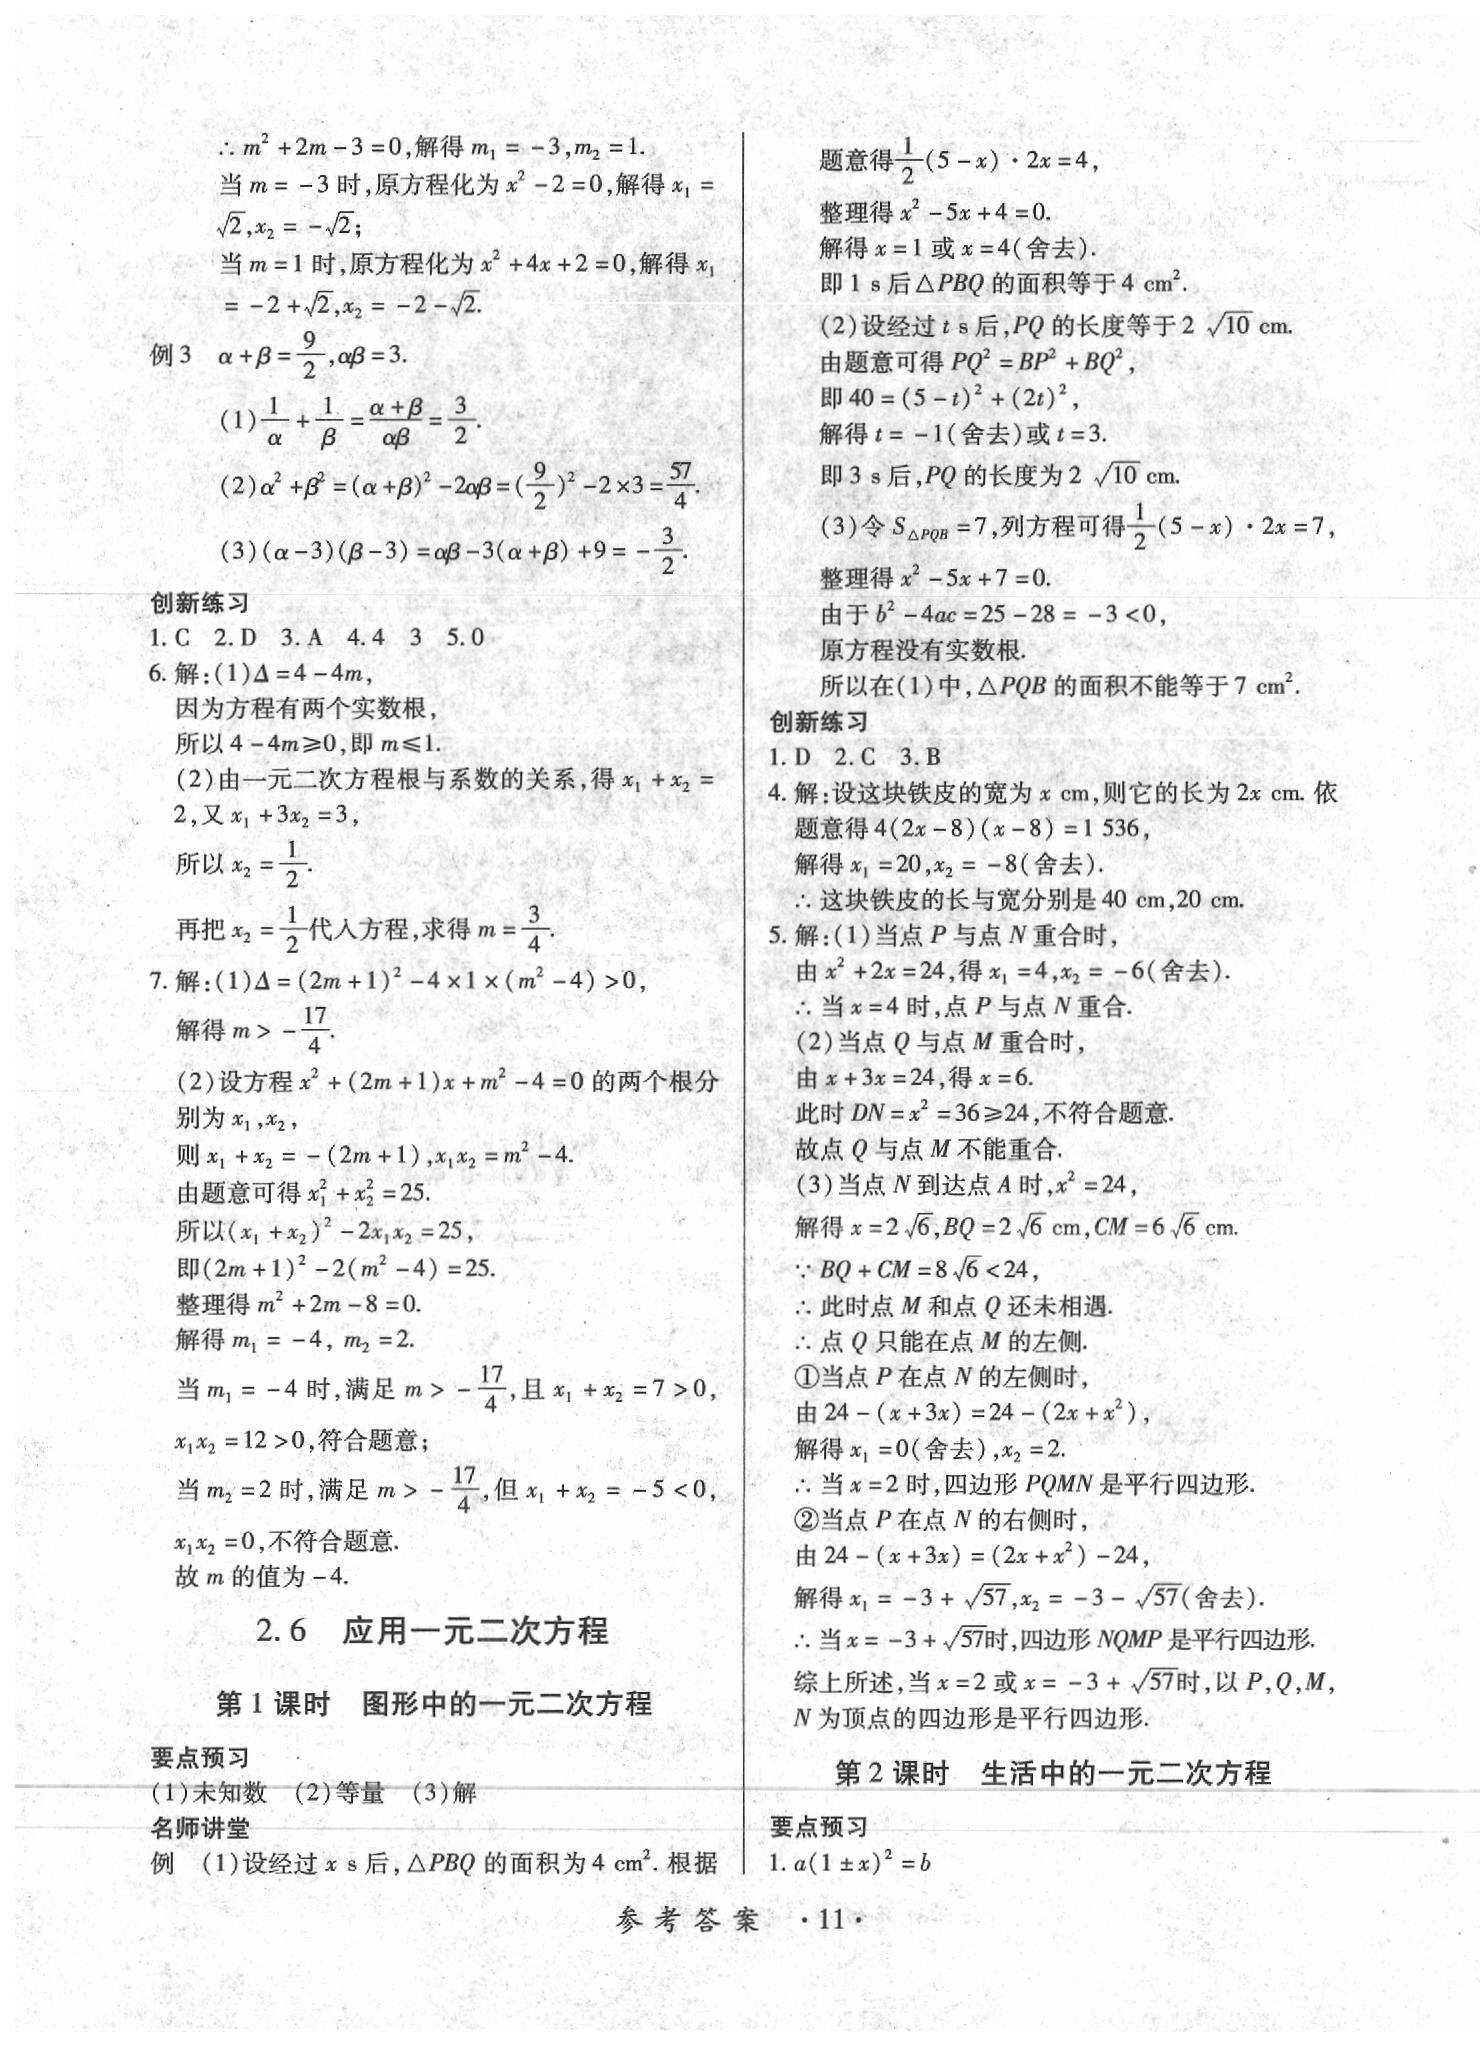 ∴ m² + 2m - 3 = 0,解得 m₁ = -3,m₂ = 1.
当 m = -3 时,原方程化为 x² - 2 = 0,解得 x₁ =
√2,x₂ = -√2;
当 m = 1 时,原方程化为 x² + 4x + 2 = 0,解得 x₁
= -2 + √2,x₂ = -2 - √2.
例 3 α + β = 9/2,αβ = 3.
(1) 1/α + 1/β = (α + β)/αβ = 3/2.
(2) α² + β² = (α + β)² - 2αβ = (9/2)² - 2 × 3 = 57/4.
(3) (α - 3)(β - 3) = αβ - 3(α + β) + 9 = -3/2.
创新练习
1. C 2. D 3. A 4. 4 3 5. 0
6. 解:(1)Δ = 4 - 4m,
因为方程有两个实数根,
所以 4 - 4m ≥ 0,即 m ≤ 1.
(2)由一元二次方程根与系数的关系,得 x₁ + x₂ =
2,又 x₁ + 3x₂ = 3,
所以 x₂ = 1/2.
再把 x₂ = 1/2 代入方程,求得 m = 3/4.
7. 解:(1)Δ = (2m + 1)² - 4 × 1 × (m² - 4) > 0,
解得 m > -17/4.
(2)设方程 x² + (2m + 1)x + m² - 4 = 0 的两个根分
别为 x₁,x₂,
则 x₁ + x₂ = -(2m + 1),x₁x₂ = m² - 4.
由题意可得 x₁² + x₂² = 25.
所以 (x₁ + x₂)² - 2x₁x₂ = 25,
即 (2m + 1)² - 2(m² - 4) = 25.
整理得 m² + 2m - 8 = 0.
解得 m₁ = -4, m₂ = 2.
当 m₁ = -4 时,满足 m > -17/4,且 x₁ + x₂ = 7 > 0,
x₁x₂ = 12 > 0,符合题意;
当 m₂ = 2 时,满足 m > -17/4,但 x₁ + x₂ = -5 < 0,
x₁x₂ = 0,不符合题意.
故 m 的值为 -4.
2.6 应用一元二次方程
第 1 课时 图形中的一元二次方程
要点预习
(1)未知数 (2)等量 (3)解
名师讲堂
例 (1)设经过 x s 后,△PBQ 的面积为 4 cm². 根据
题意得 1/2(5 - x)·2x = 4,
整理得 x² - 5x + 4 = 0.
解得 x = 1 或 x = 4(舍去).
即 1 s 后 △PBQ 的面积等于 4 cm².
(2)设经过 t s 后,PQ 的长度等于 2 √10 cm.
由题意可得 PQ² = BP² + BQ²,
即 40 = (5 - t)² + (2t)²,
解得 t = -1(舍去)或 t = 3.
即 3 s 后,PQ 的长度为 2 √10 cm.
(3)令 S△PQB = 7,列方程可得 1/2(5 - x)·2x = 7,
整理得 x² - 5x + 7 = 0.
由于 b² - 4ac = 25 - 28 = -3 < 0,
原方程没有实数根.
所以在(1)中,△PQB 的面积不能等于 7 cm².
创新练习
1. D 2. C 3. B
4. 解:设这块铁皮的宽为 x cm,则它的长为 2x cm. 依
题意得 4(2x - 8)(x - 8) = 1 536,
解得 x₁ = 20,x₂ = -8(舍去).
∴ 这块铁皮的长与宽分别是 40 cm,20 cm.
5. 解:(1)当点 P 与点 N 重合时,
由 x² + 2x = 24,得 x₁ = 4,x₂ = -6(舍去).
∴ 当 x = 4 时,点 P 与点 N 重合.
(2)当点 Q 与点 M 重合时,
由 x + 3x = 24,得 x = 6.
此时 DN = x² = 36 ≥ 24,不符合题意.
故点 Q 与点 M 不能重合.
(3)当点 N 到达点 A 时,x² = 24,
解得 x = 2√6,BQ = 2√6 cm,CM = 6√6 cm.
∵ BQ + CM = 8√6 < 24,
∴ 此时点 M 和点 Q 还未相遇.
∴ 点 Q 只能在点 M 的左侧.
①当点 P 在点 N 的左侧时,
由 24 - (x + 3x) = 24 - (2x + x²),
解得 x₁ = 0(舍去),x₂ = 2.
∴ 当 x = 2 时,四边形 PQMN 是平行四边形.
②当点 P 在点 N 的右侧时,
由 24 - (x + 3x) = (2x + x²) - 24,
解得 x₁ = -3 + √57,x₂ = -3 - √57(舍去).
∴ 当 x = -3 + √57时,四边形 NQMP 是平行四边形.
综上所述,当 x = 2 或 x = -3 + √57时,以 P,Q,M,
N 为顶点的四边形是平行四边形.
第 2 课时 生活中的一元二次方程
要点预习
1. a(1 ± x)² = b
参考答案 ·11·